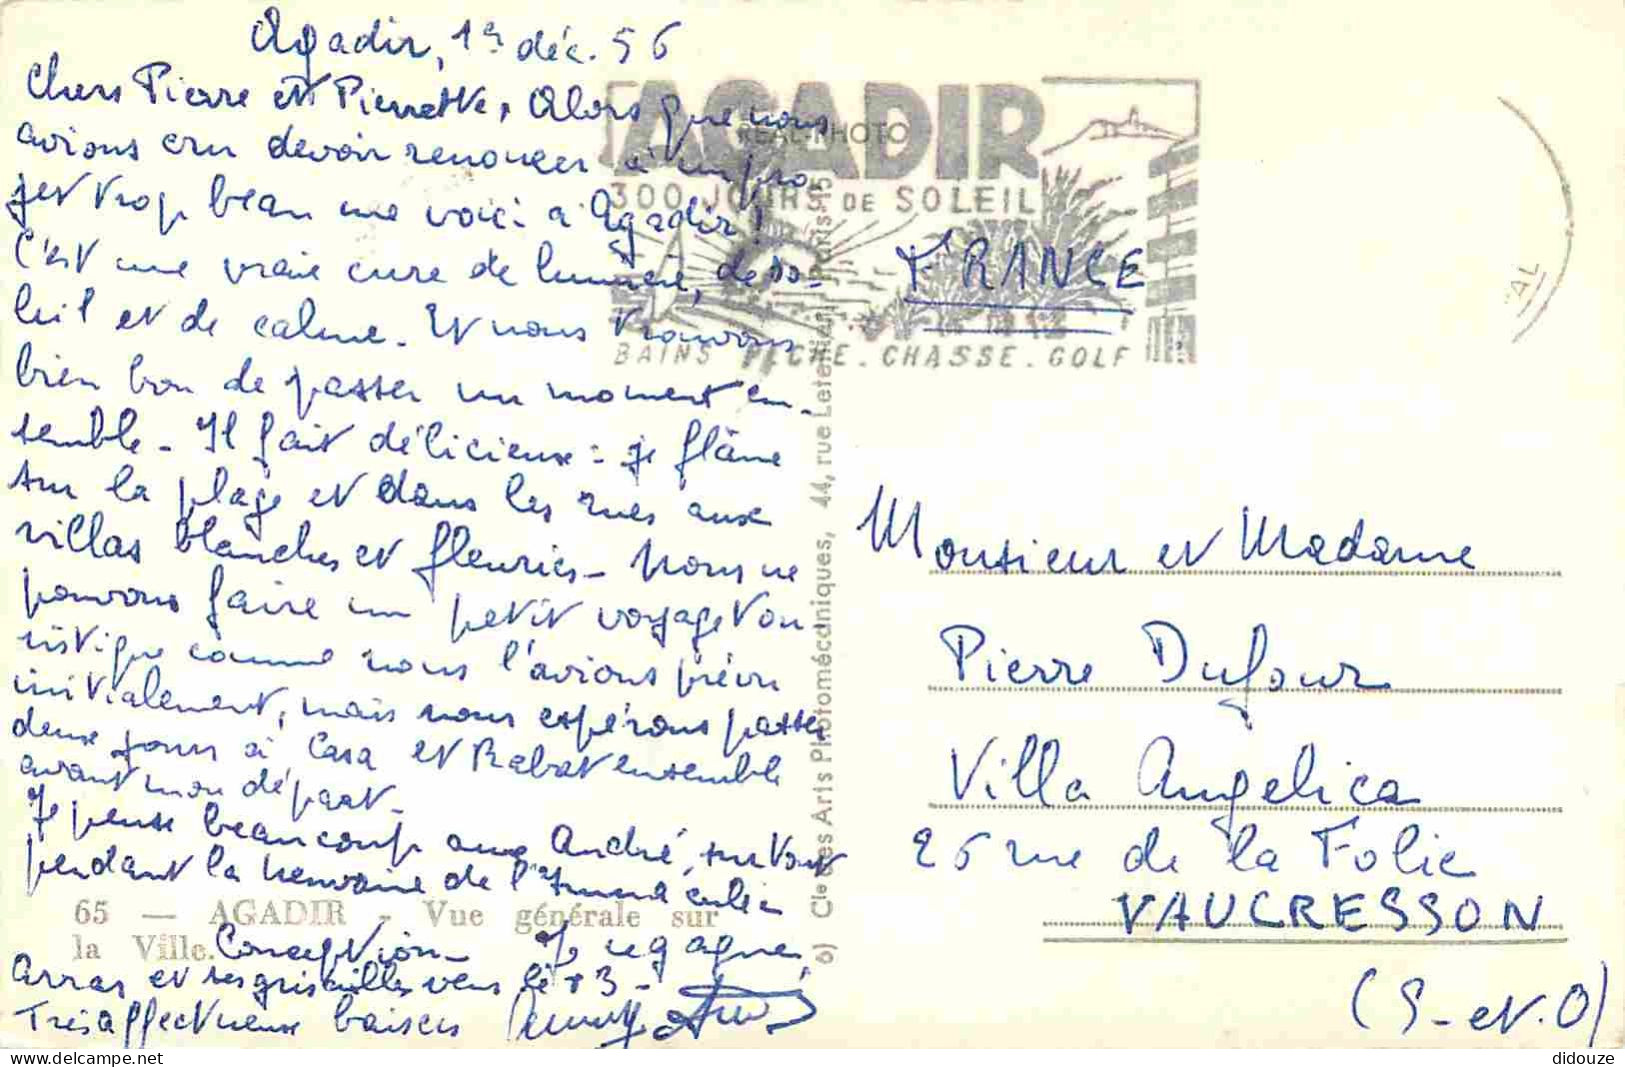 Agadir, 1er déc. 56
Chers Pierre et Pierrette, Alors que nous
avions cru devoir renoncer à un pro-
jet trop beau me voici à Agadir !
C'est une vraie cure de lumière, de so-
leil et de calme. Et nous trouvons
bien bon de passer un moment en-
semble - Il fait délicieux : je flâne
sur la plage et dans les rues aux
villas blanches et fleuries - Nous ne
pouvons faire un petit voyage tou
ristique comme nous l'avions prévu
initialement, mais nous espérons passer
deux jours à Casa et Rabat ensemble
avant mon départ -
Je pense beaucoup aux André, surtout
pendant la neuvaine de l'Immaculée
Conception - Je regagne
Arras et ses grisailles vers le 13 -
Très affectueux baisers
65 — AGADIR - Vue générale sur
la Ville.
AGADIR
REAL-PHOTO
300 JOURS DE SOLEIL
BAINS PECHE. CHASSE. GOLF
Cie des Arts Photomécaniques, 44, rue Letellier, Paris-15
FRANCE
Monsieur et Madame
Pierre Dufour
Villa Angelica
26 rue de la Folie
VAUCRESSON
(S-et-O)
didouze